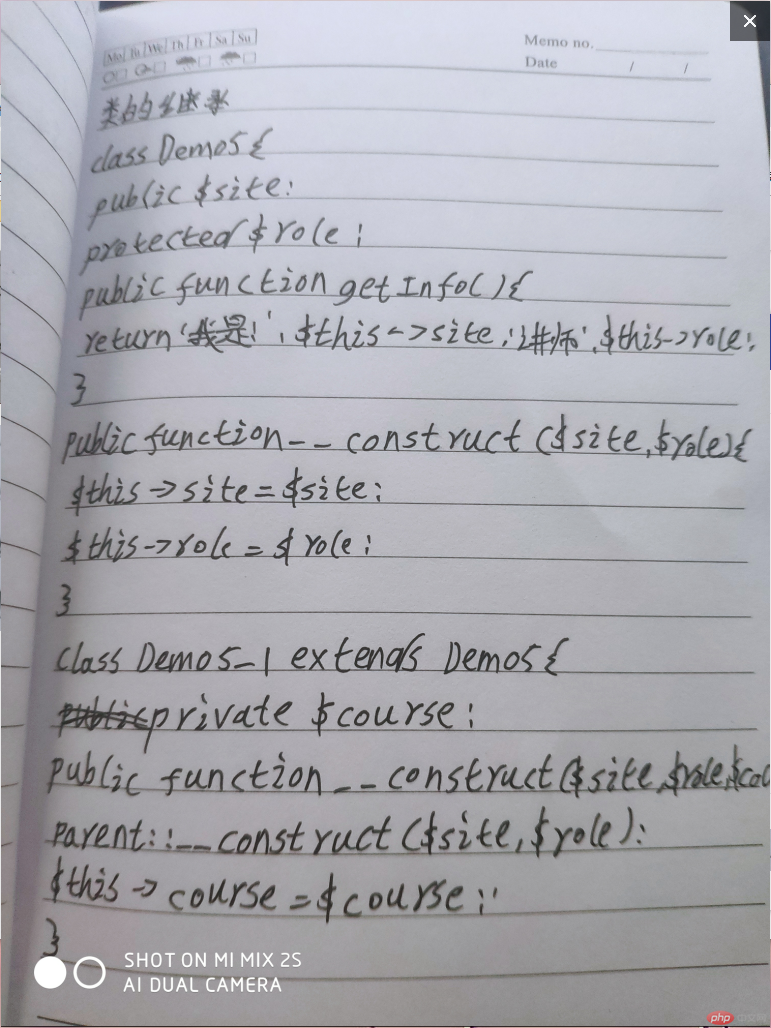 Mo Tu We Th Fr Sa Su
Memo no.
Date / /
类的继承
class Demo5{
public $site;
protected $role;
public function getInfo(){
return '我是!'.$this->site.'讲师'.$this->role;
}
public function __construct($site,$role){
$this->site=$site;
$this->role=$role;
}
class Demo5_1 extends Demo5{
private $course;
public function __construct($site,$role,$cou
parent::__construct($site,$role);
$this->course=$course;
}
SHOT ON MI MIX 2S
AI DUAL CAMERA
php